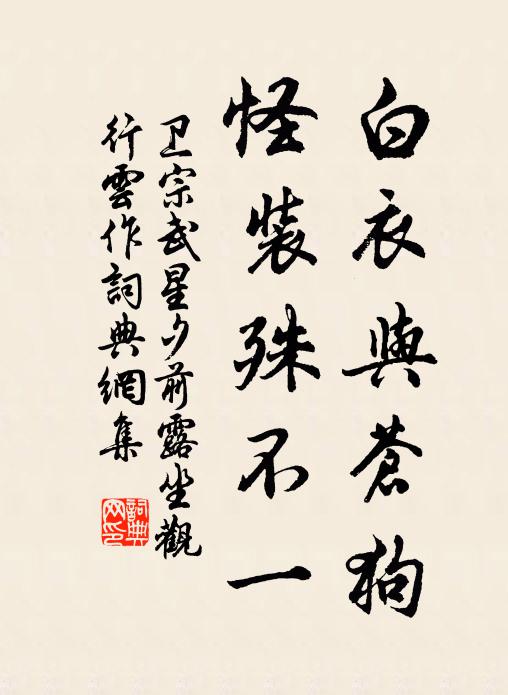 白衣與蒼狗
怪裝殊不一
卫宗武星夕前露坐觀
行雲作詞典網集
詞典
网印